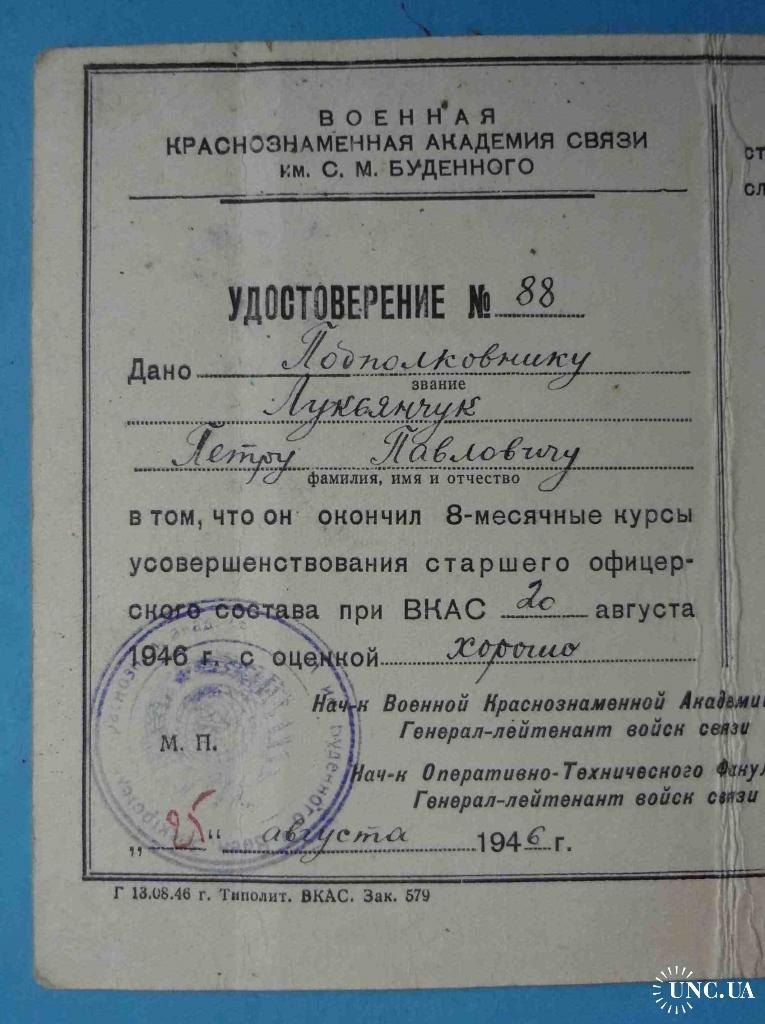 ВОЕННАЯ
КРАСНОЗНАМЕННАЯ АКАДЕМИЯ СВЯЗИ
им. С. М. БУДЕННОГО
УДОСТОВЕРЕНИЕ № 88
Дано Подполковнику
звание
Лукьянчук
Петру Павловичу
фамилия, имя и отчество
в том, что он окончил 8-месячные курсы
усовершенствования старшего офицер-
ского состава при ВКАС 20 августа
1946 г. с оценкой хорошо
Нач-к Военной Краснознаменной Академи
Генерал-лейтенант войск связи
М. П.
Нач-к Оперативно-Технического Факул
Генерал-лейтенант войск связи
„25“ августа 1946 г.
Г 13.08.46 г. Типолит. ВКАС. Зак. 579
ст
сл
UNC.UA